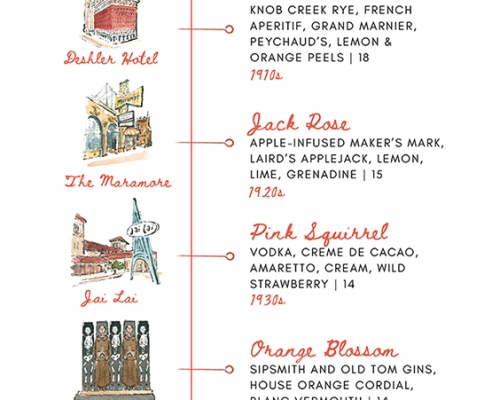 KNOB CREEK RYE, FRENCH
APERITIF, GRAND MARNIER,
PEYCHAUD'S, LEMON &
ORANGE PEELS | 18
1910s
Deshler Hotel
Jack Rose
APPLE-INFUSED MAKER'S MARK,
LAIRD'S APPLEJACK, LEMON,
LIME, GRENADINE | 15
1920s
The Maramore
Pink Squirrel
VODKA, CREME DE CACAO,
AMARETTO, CREAM, WILD
STRAWBERRY | 14
1930s
Jai Lai
Jai Lai
Orange Blossom
SIPSMITH AND OLD TOM GINS,
HOUSE ORANGE CORDIAL,
BLANC VERMOUTH | 14